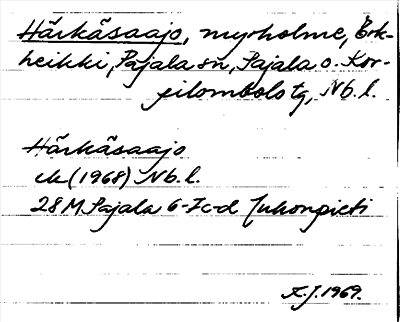 Härkäsaajo, myrholme, Erk-
heikki, Pajala sn, Pajala o. Kor-
pilombolo tg, Nb. l.
Härkäsaajo
ek (1968) Nb. l.
28 M Pajala 6-7 c-d Juhonpieti
A.J. 1969.